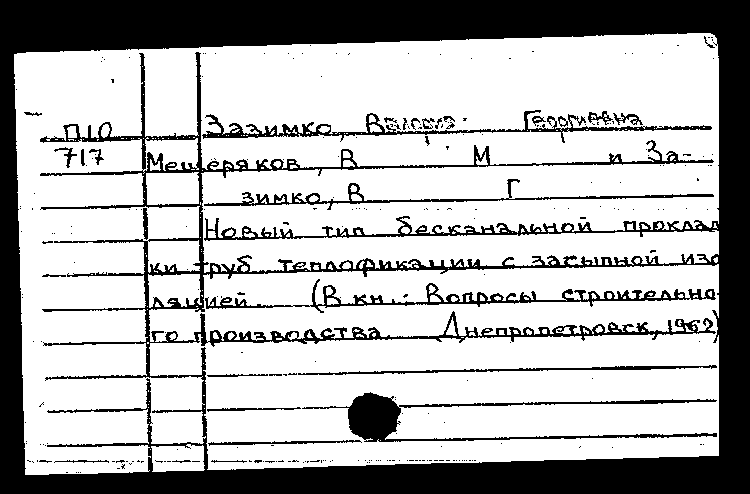 П10 Зазимко, Валерия Георгиевна
717 Мещеряков, В М и За-
зимко, В Г
Новый тип бесканальной проклад
ки труб теплофикации с засыпной изо
ляцией. (В кн.: Вопросы строительно
го производства. Днепропетровск, 1962)